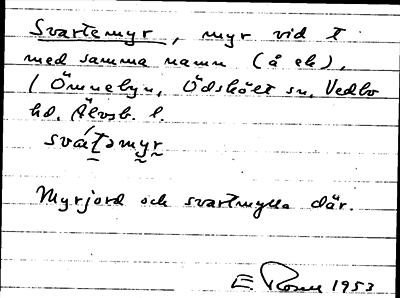 Svartemyr, myr vid t
med samma namn (å ek).
/ Ömneby, Ödskölt sn, Vedbo
hd. Älvsb. l.
svátəmyr
Myrjord och svartmylla där.
E 1953